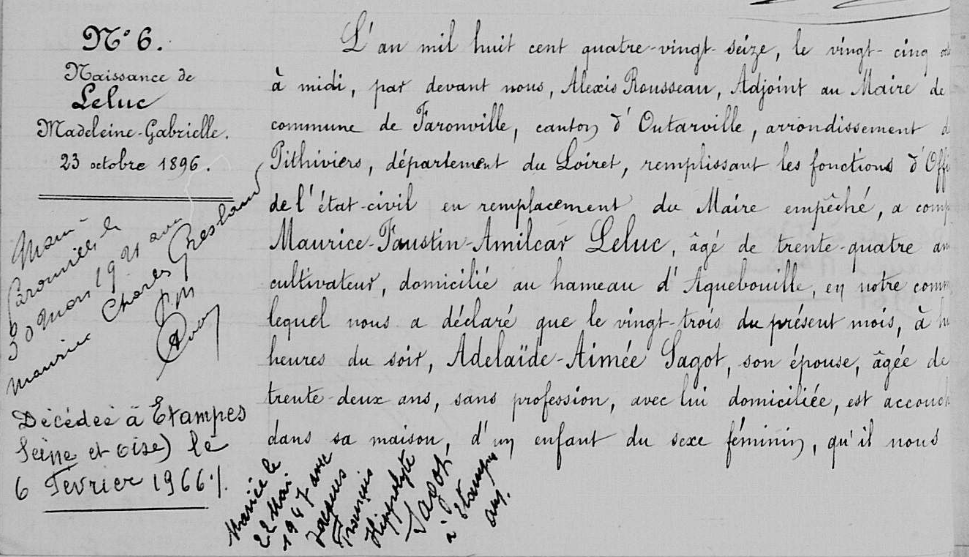 N° 6.
Naissance de
Leluc
Madeleine-Gabrielle.
23 octobre 1896.
Marié à
Faronville le
30 mars 1921 avec
Maurice Charles
Décédée à Etampes
(Seine et Oise) le
6 Février 1966 /.
L'an mil huit cent quatre-vingt-seize, le vingt-cinq
à midi, par devant nous, Alexis Rousseau, Adjoint au Maire de
commune de Faronville, canton d'Outarville, arrondissement d
Pithiviers, département du Loiret, remplissant les fonctions d'Offi
de l'état-civil en remplacement du Maire empêché, a comp
Maurice-Faustin-Amilcar Leluc, âgé de trente-quatre an
cultivateur, domicilié au hameau d'Aquebouille, en notre comm
lequel nous a déclaré que le vingt-trois du présent mois, à hu
heures du soir, Adelaïde-Aimée Sagot, son épouse, âgée de
trente-deux ans, sans profession, avec lui domiciliée, est accouch
dans sa maison, d'un enfant du sexe féminin, qu'il nous
Mariée le
22 Mai
1947 avec
Jacques
François
Hippolyte
Sagot
à Etampes